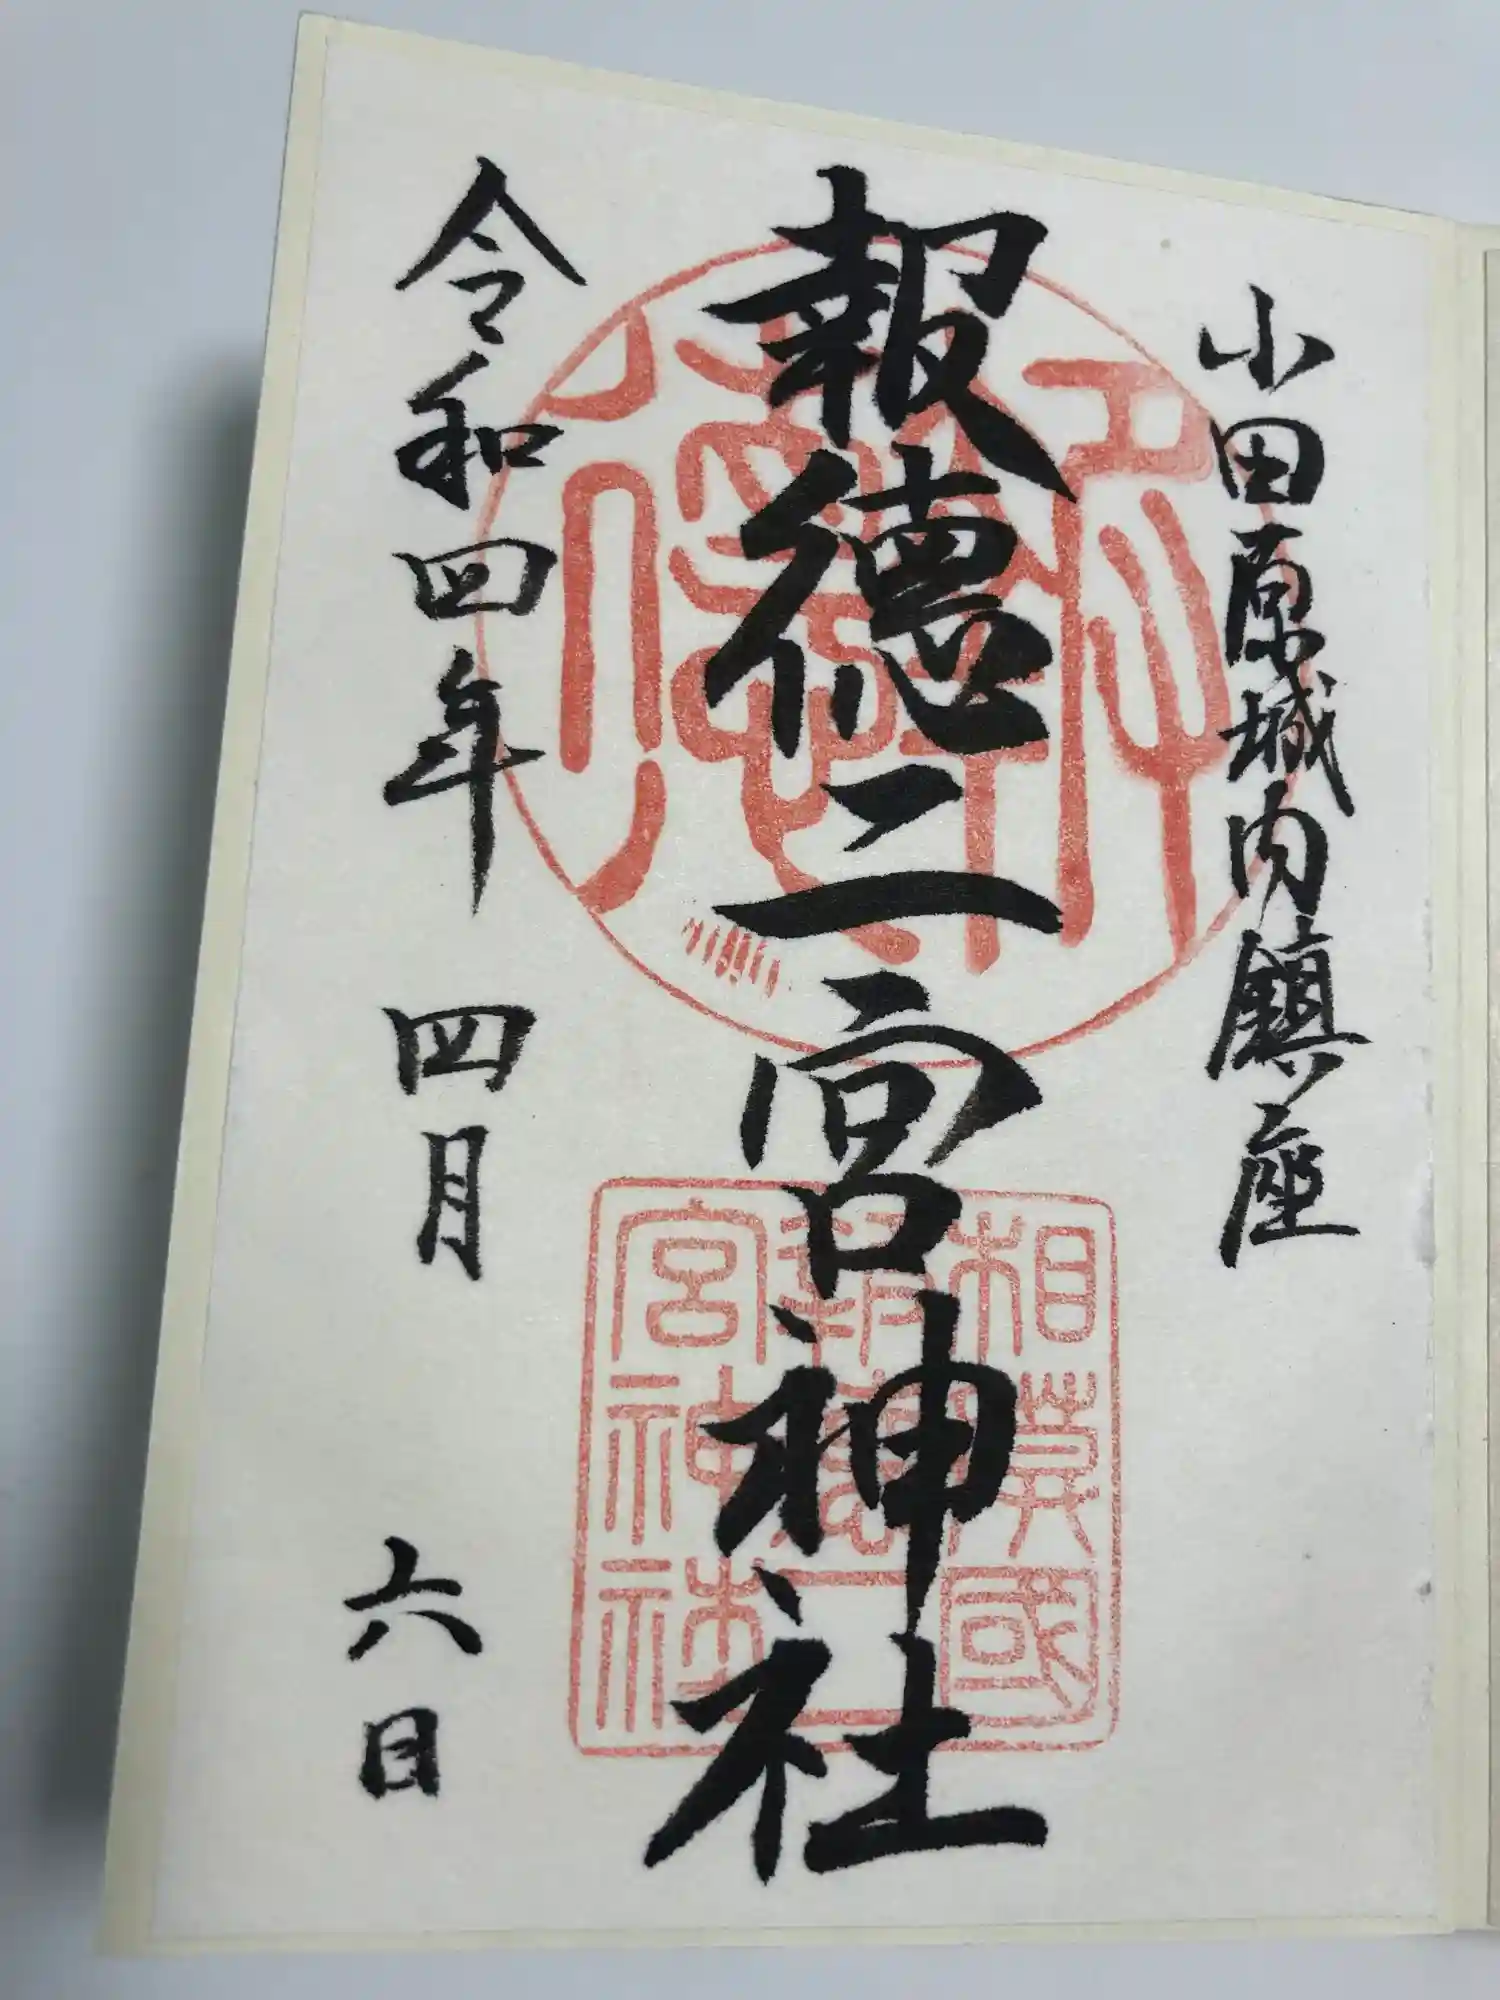 小田原城内鎮座
報徳二宮神社
令和四年 四月 六日
報徳
相莫國
報徳二
宮神社